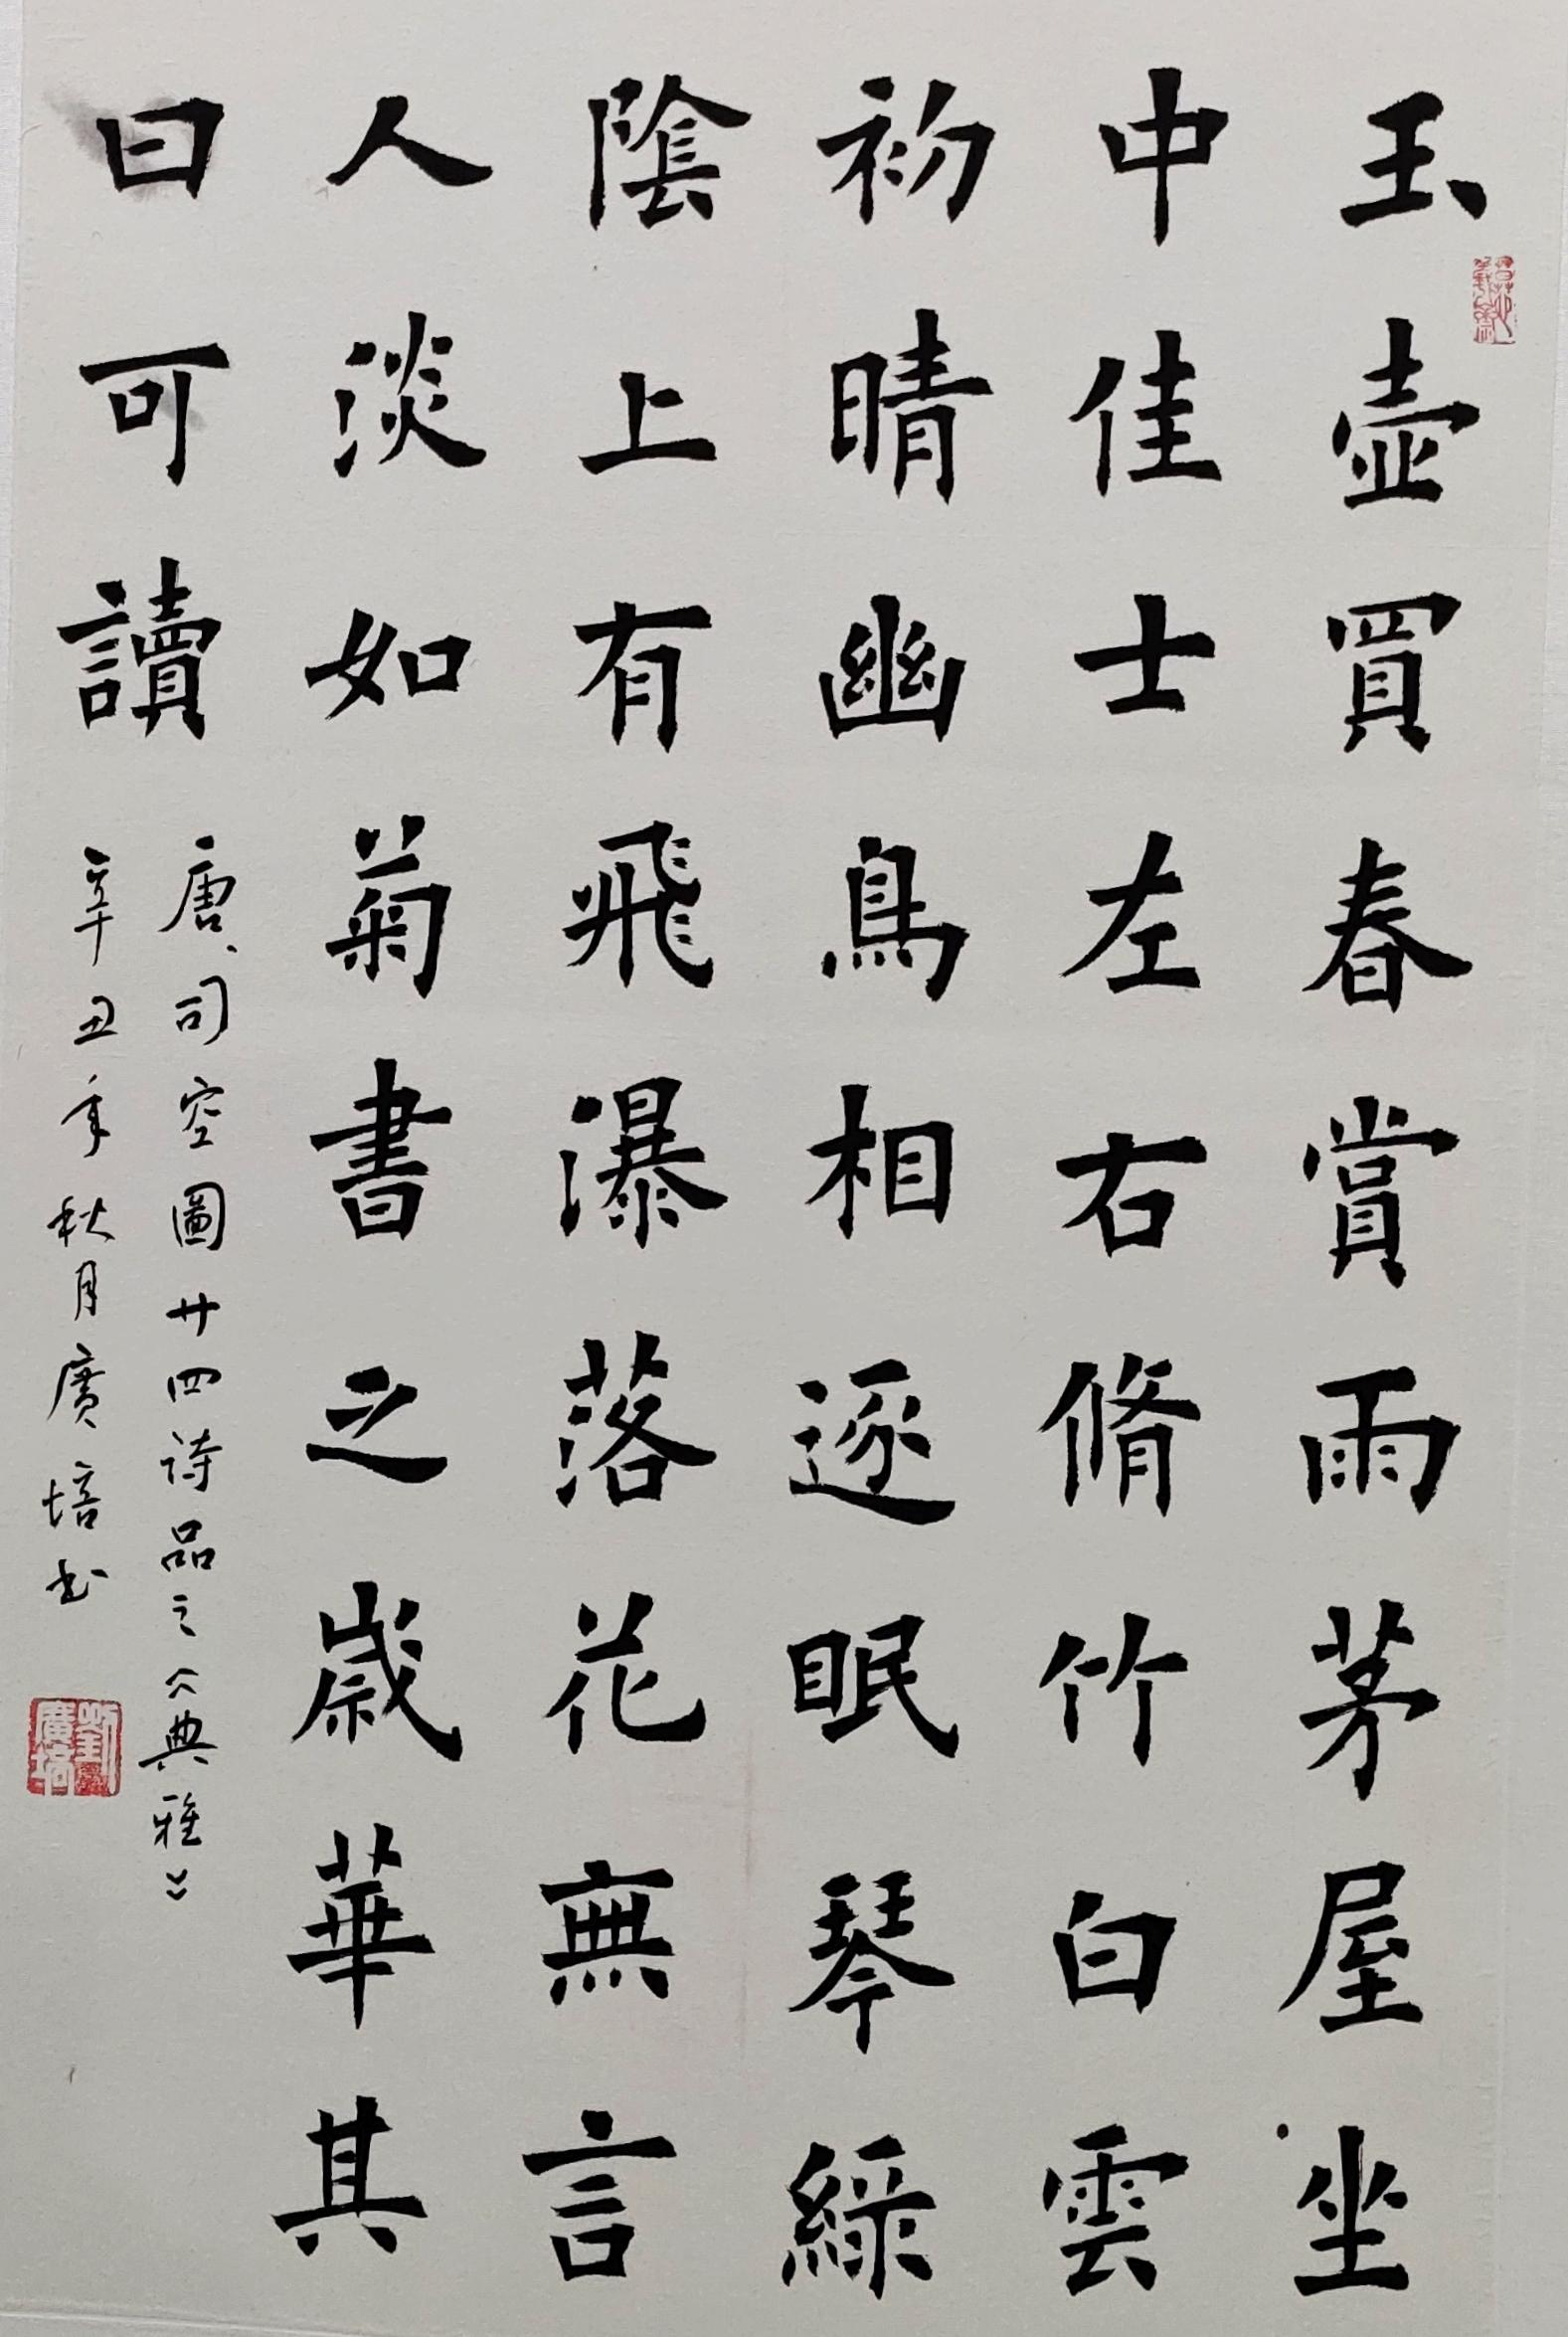 玉壺買春賞雨茅屋坐
中佳士左右脩竹白雲
初晴幽鳥相逐眠琴綠
陰上有飛瀑落花無言
人淡如菊書之歲華其
曰可讀
唐、司空圖廿四詩品之《典雅》
辛丑年秋月廣培书
劉廣培